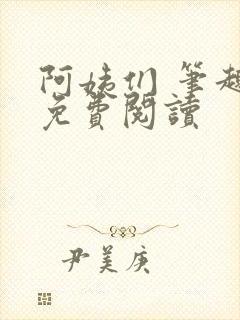 阿姨们 筆趣
免費閱讀
尹美庚